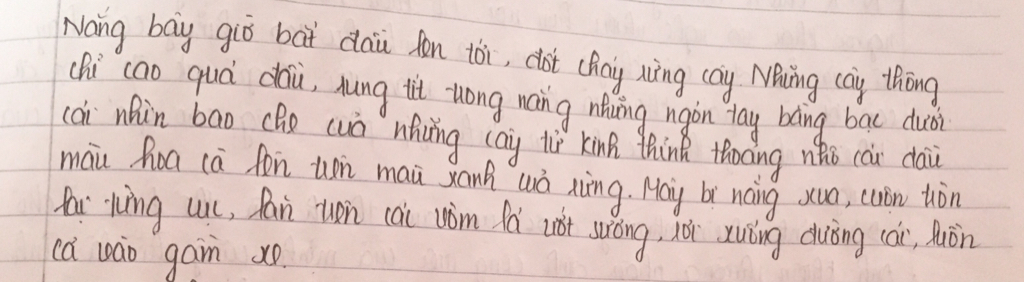 Nắng bây giờ bắt đầu len tới, đốt cháy rừng cây Những cây thông
chỉ cao quá đầu, rung tít trong nắng những ngón tay bằng bạc dưới
cái nhìn bao che của những cây tử kinh thỉnh thoảng nhô cái đầu
màu hoa cà lên trên màu xanh của rừng. Mây bị nắng xua, cuộn tròn
lại từng cục, lăn trên các vòm lá ướt sương, rơi xuống đường cái, luồn
cả vào gầm xe.